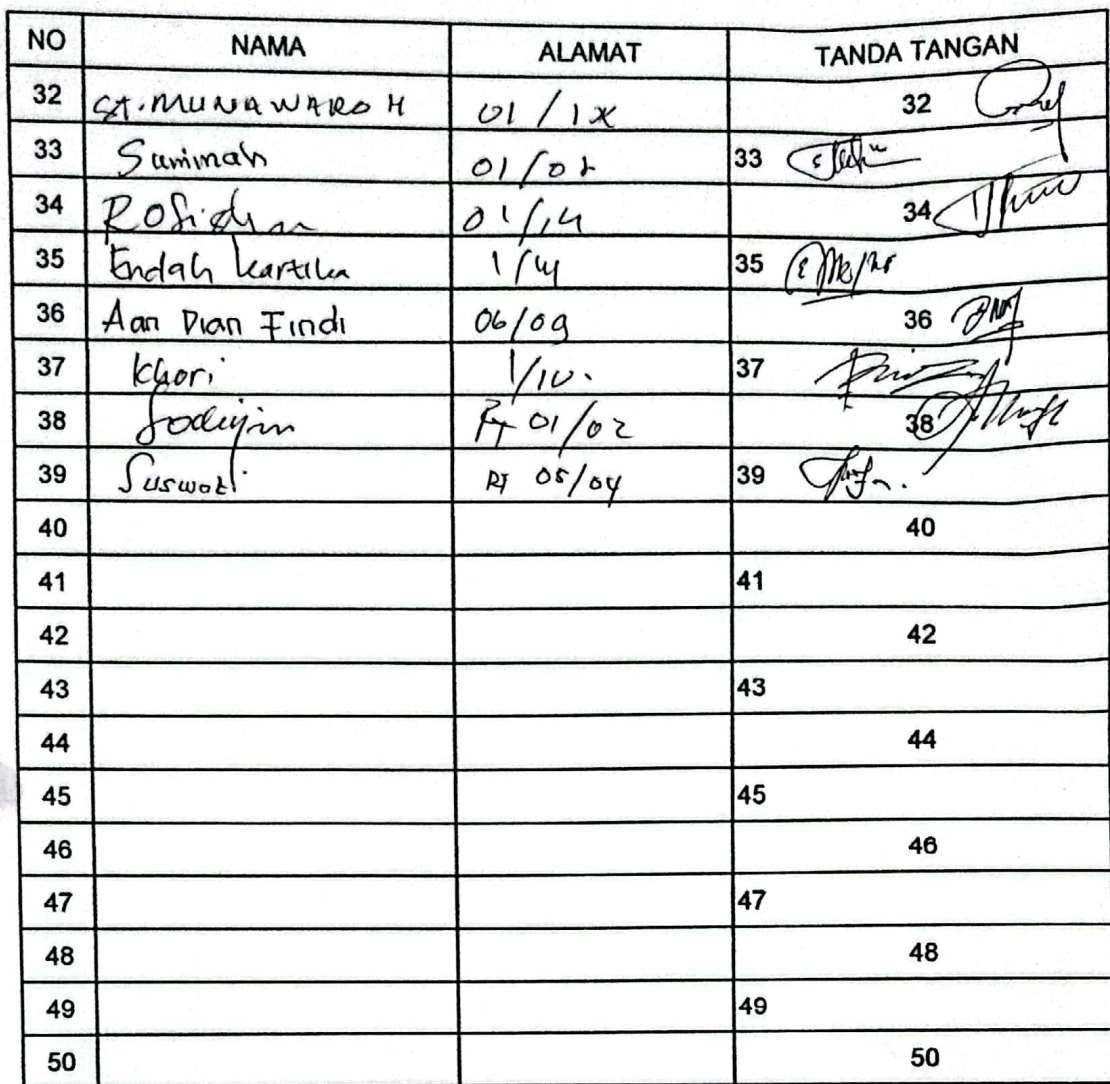 NO NAMA ALAMAT TANDA TANGAN
32 ST. MUNAWAROH 01/IX 32
33 Suminah 01/02 33
34 34
35 Endah Kartika 35
36 Aan Dian Findi 06/09 36
37 Khori 1/10. 37
38 Sodiyin RT 01/02 38
39 Suswati RT 05/04 39
40 40
41 41
42 42
43 43
44 44
45 45
46 46
47 47
48 48
49 49
50 50